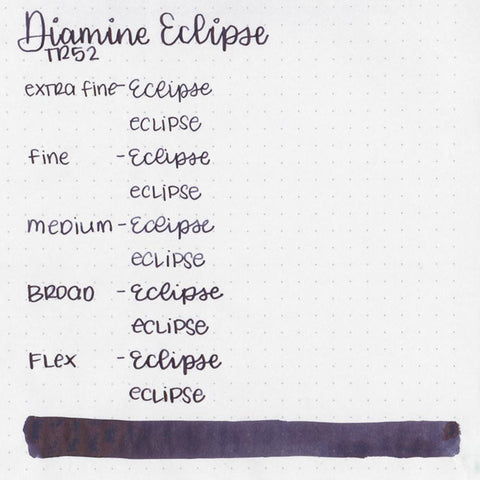 Diamine Eclipse
TR52
extra fine - Eclipse
eclipse
fine - Eclipse
eclipse
medium - Eclipse
eclipse
Broad - Eclipse
eclipse
Flex - Eclipse
eclipse